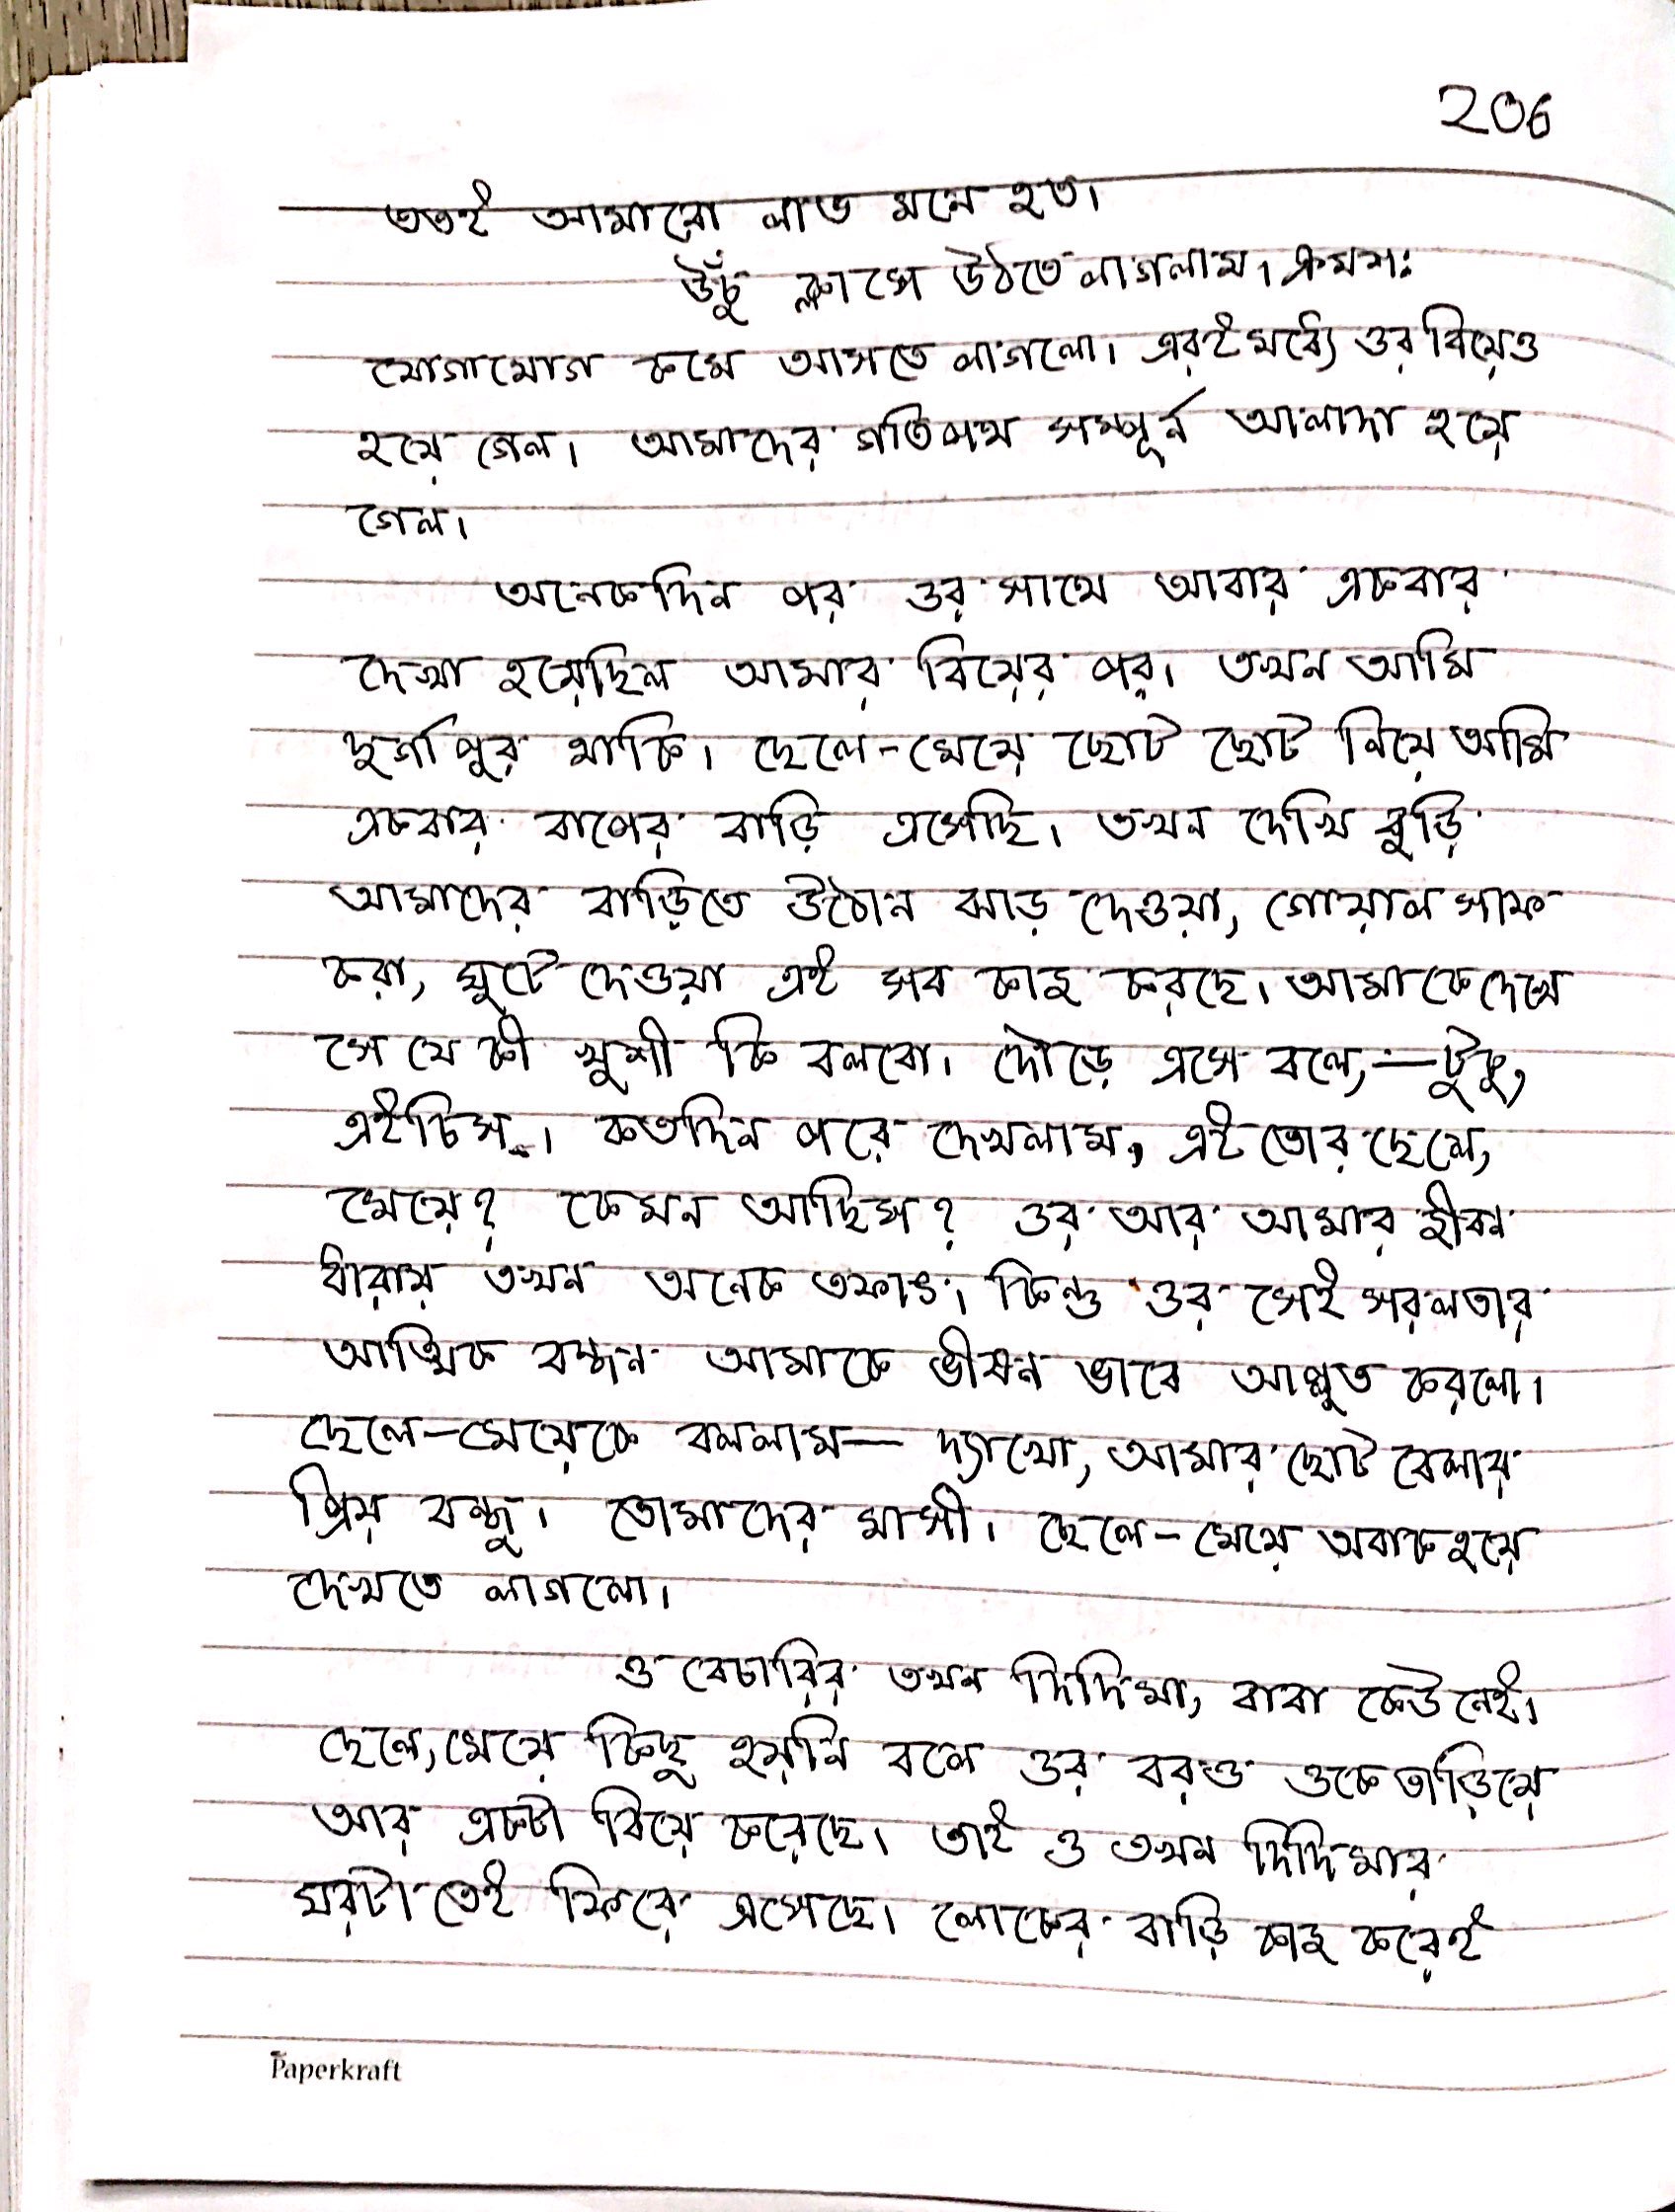 206
ততই আমারো লাভ মনে হত।
উঁচু ক্লাসে উঠতে লাগলাম। ক্রমশঃ
যোগাযোগ কমে আসতে লাগলো। এরই মধ্যে ওর বিয়েও
হয়ে গেল। আমাদের গতিপথ সম্পূর্ন আলাদা হয়ে
গেল।
অনেকদিন পর ওর সাথে আবার একবার
দেখা হয়েছিল আমার বিয়ের পর। তখন আমি
দুর্গাপুর থাকি। ছেলে-মেয়ে ছোট ছোট নিয়ে আমি
একবার বাপের বাড়ি এসেছি। তখন দেখি বুড়ি
আমাদের বাড়িতে উঠোন ঝাড় দেওয়া, গোয়াল সাফ
করা, ঘুটে দেওয়া এই সব কাজ করছে। আমাকে দেখে
সে যে কী খুশী কি বলবো। দৌড়ে এসে বলে,—টুকু,
এইচিস্। কতদিন পরে দেখলাম, এই তোর ছেলে,
মেয়ে? কেমন আছিস? ওর আর আমার জীবন
ধারায় তখন অনেক তফাৎ। কিন্তু ওর সেই সরলতার
আত্মিক বন্ধন আমাকে ভীষন ভাবে আপ্লুত করলো।
ছেলে-মেয়েকে বললাম— দ্যাখো, আমার ছোট বেলার
প্রিয় বন্ধু। তোমাদের মাসী। ছেলে-মেয়ে অবাক হয়ে
দেখতে লাগলো।
ও বেচারির তখন দিদিমা, বাবা কেউ নেই।
ছেলে, মেয়ে কিছু হয়নি বলে ওর বরও ওকে তাড়িয়ে
আর একটা বিয়ে করেছে। তাই ও তখন দিদিমার
ঘরটাতেই ফিরে এসেছে। লোকের বাড়ি কাজ করেই
Paperkraft